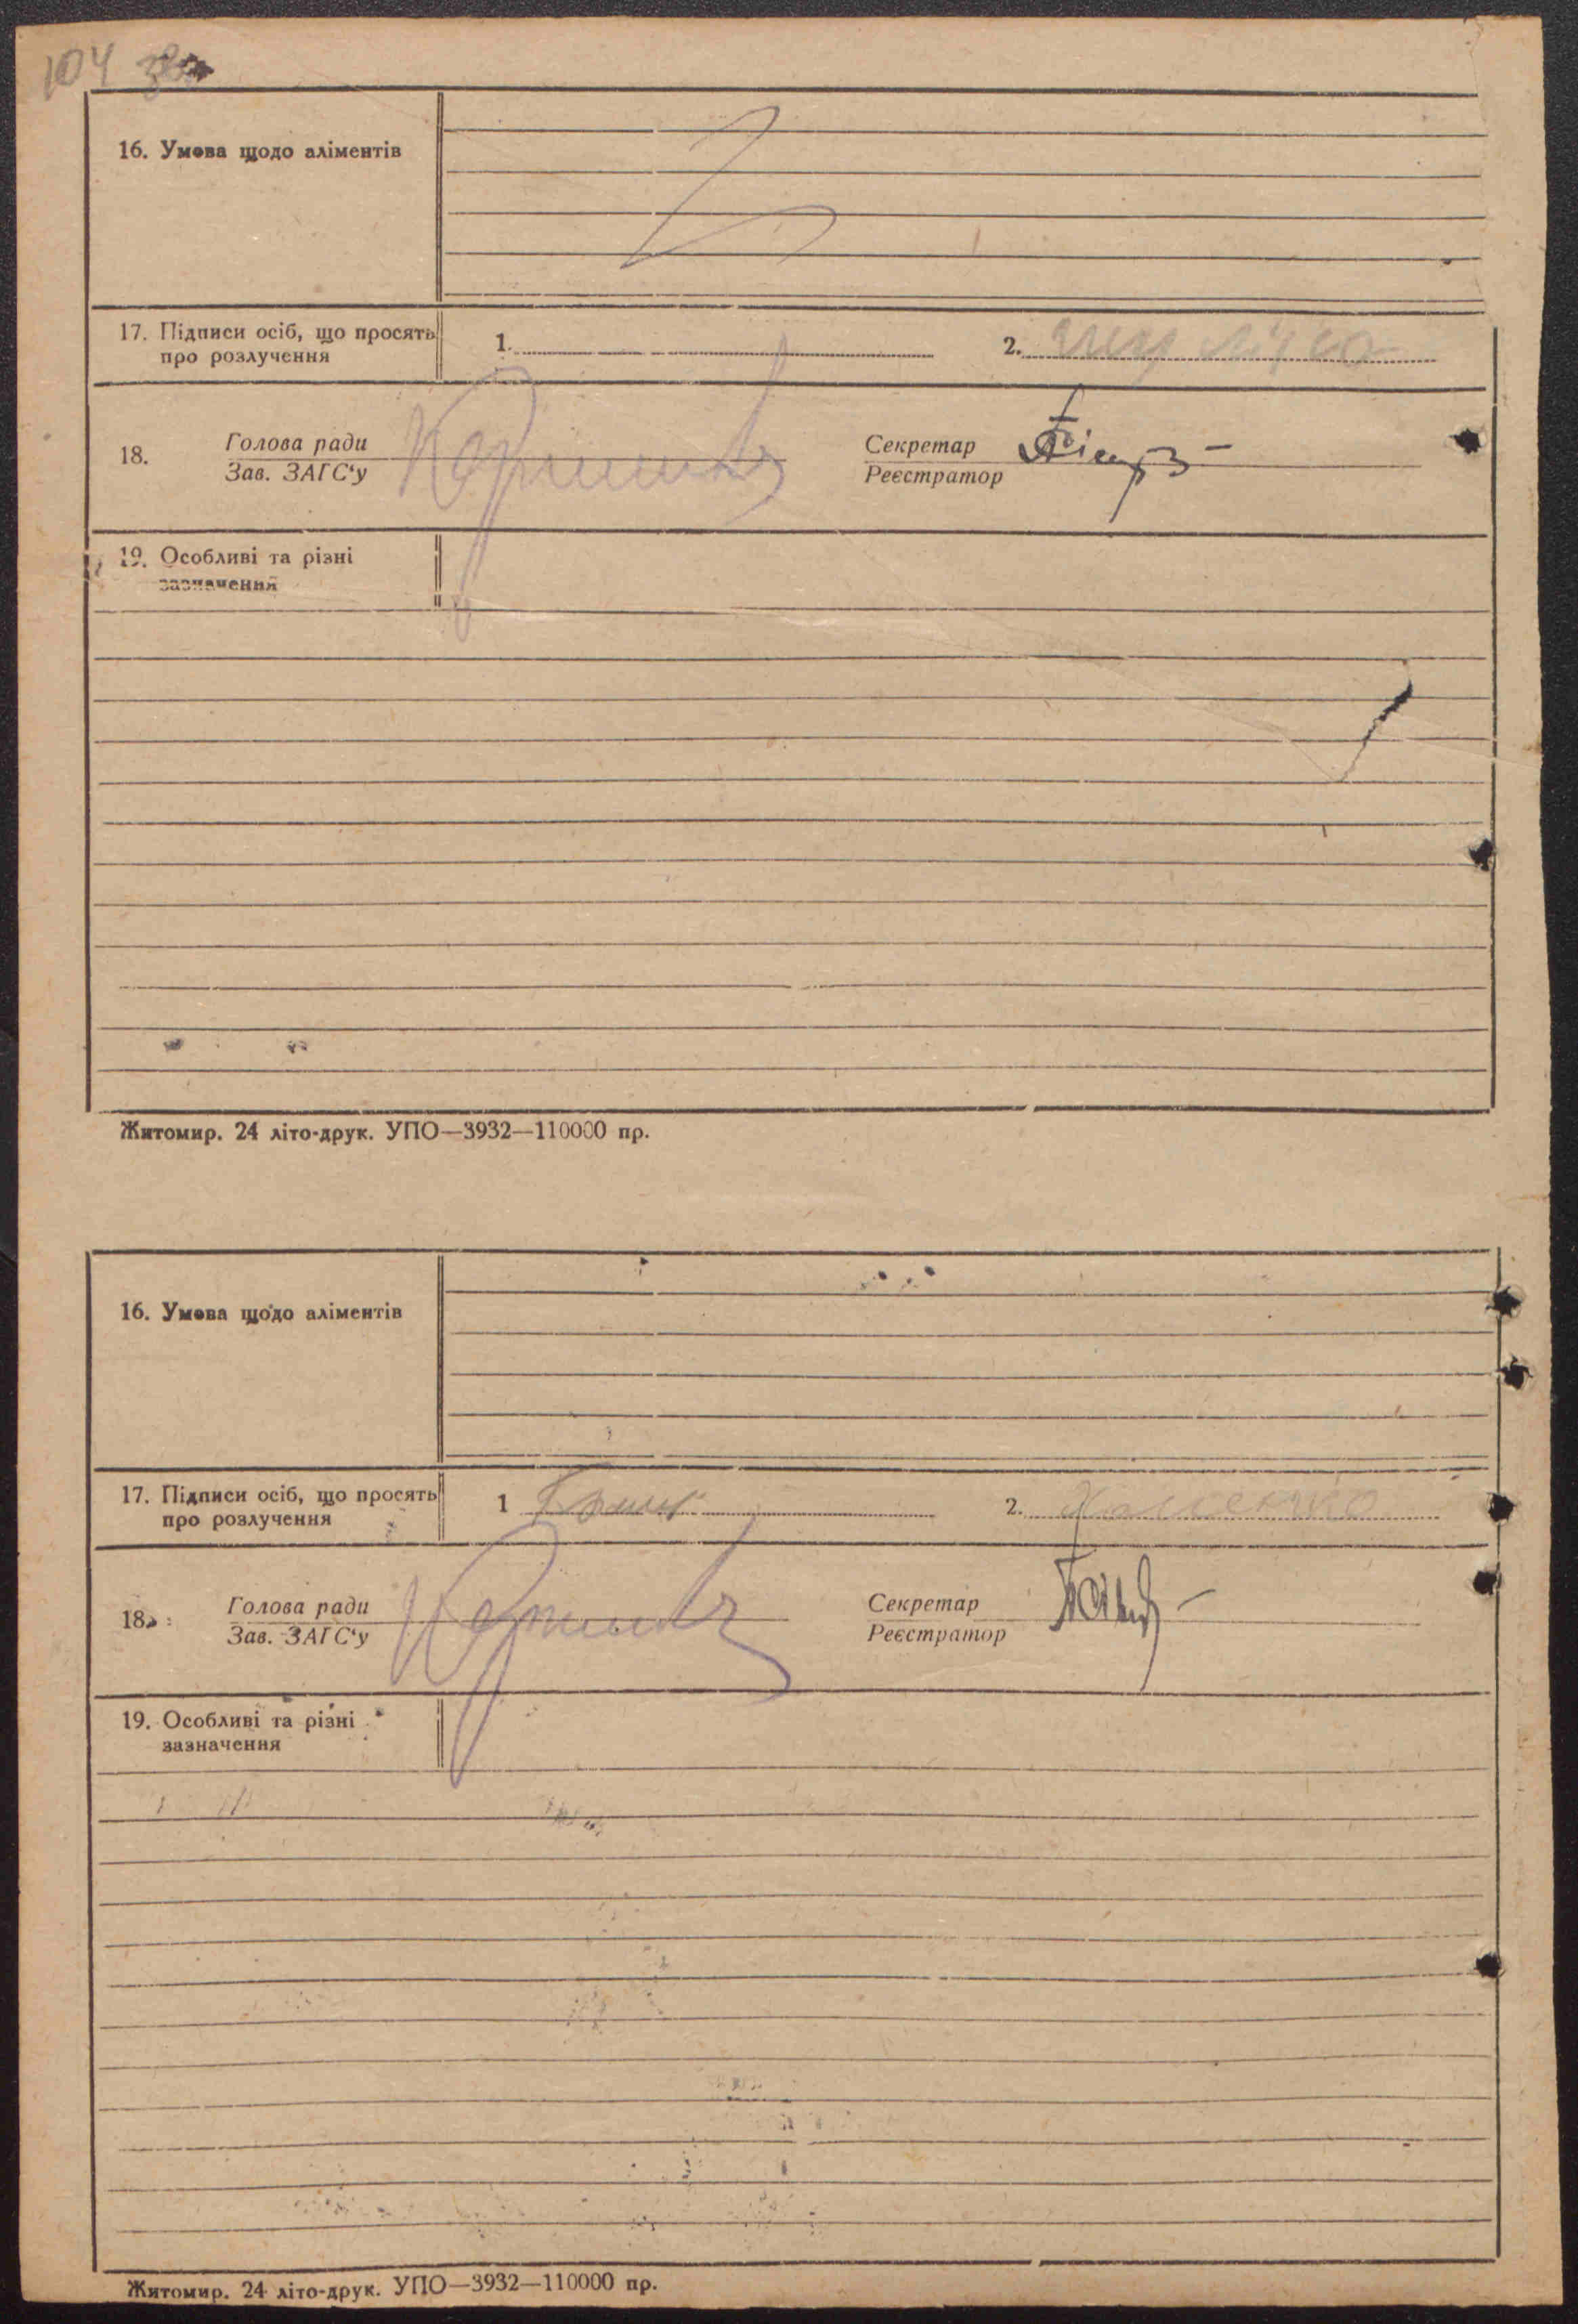 104 зв
16. Умова щодо аліментів
17. Підписи осіб, що просять
про розлучення
1.
2.
18.
Голова ради
Зав. ЗАГС‘у
Секретар
Реєстратор
19. Особливі та різні
зазначення
Житомир. 24 літо-друк. УПО—3932—110000 пр.
16. Умова щодо аліментів
17. Підписи осіб, що просять
про розлучення
1
2.
18.
Голова ради
Зав. ЗАГС‘у
Секретар
Реєстратор
19. Особливі та різні
зазначення
Житомир. 24 літо-друк. УПО—3932—110000 пр.